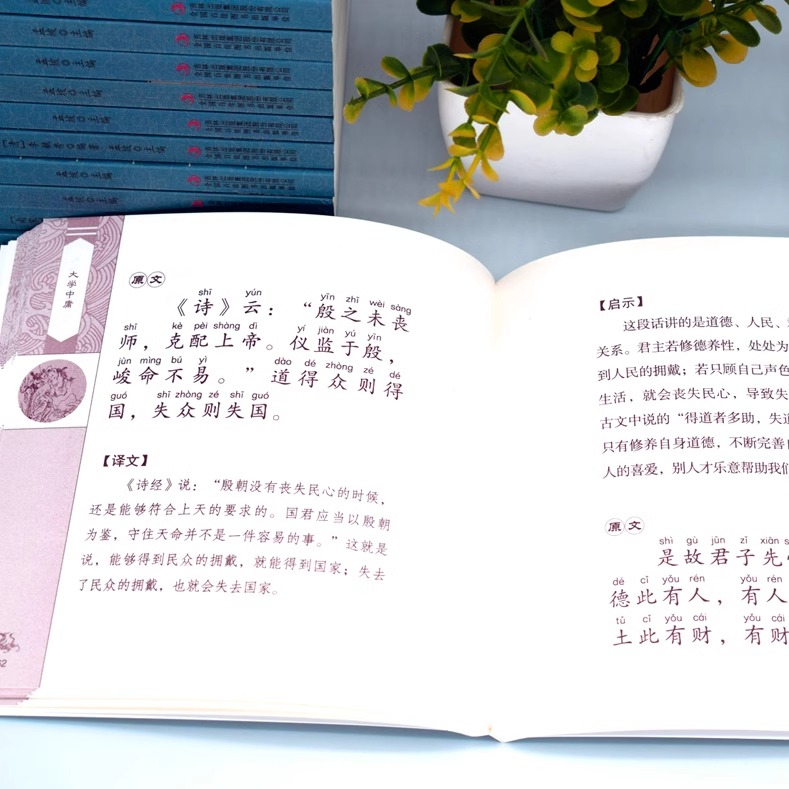 孟波◎主编
孟波◎主编
孟波◎主编
孟波◎主编
孟波◎主编
孟波◎主编
孟波◎主编
大学中庸
原文
shī yún yīn zhī wèi sàng
《诗》云：“殷之未丧
shī kè pèi shàng dì yí jiàn yú yīn
师，克配上帝。仪监于殷，
jùn mìng bú yì dào dé zhòng zé dé
峻命不易。”道得众则得
guó shī zhòng zé shī guó
国，失众则失国。
【译文】
《诗经》说：“殷朝没有丧失民心的时候，
还是能够符合上天的要求的。国君应当以殷朝
为鉴，守住天命并不是一件容易的事。”这就是
说，能够得到民众的拥戴，就能得到国家；失去
了民众的拥戴，也就会失去国家。
62
【启示】
这段话讲的是道德、人民、
关系。君主若修德养性，处处为
到人民的拥戴；若只顾自己声色
生活，就会丧失民心，导致失
古文中说的“得道者多助，失道
只有修养自身道德，不断完善自
人的喜爱，别人才乐意帮助我们
原文
shì gù jūn zǐ xiān
是故君子先
dé cǐ yǒu rén yǒu rén
德此有人，有人
tǔ cǐ yǒu cái yǒu cái
土此有财，有财